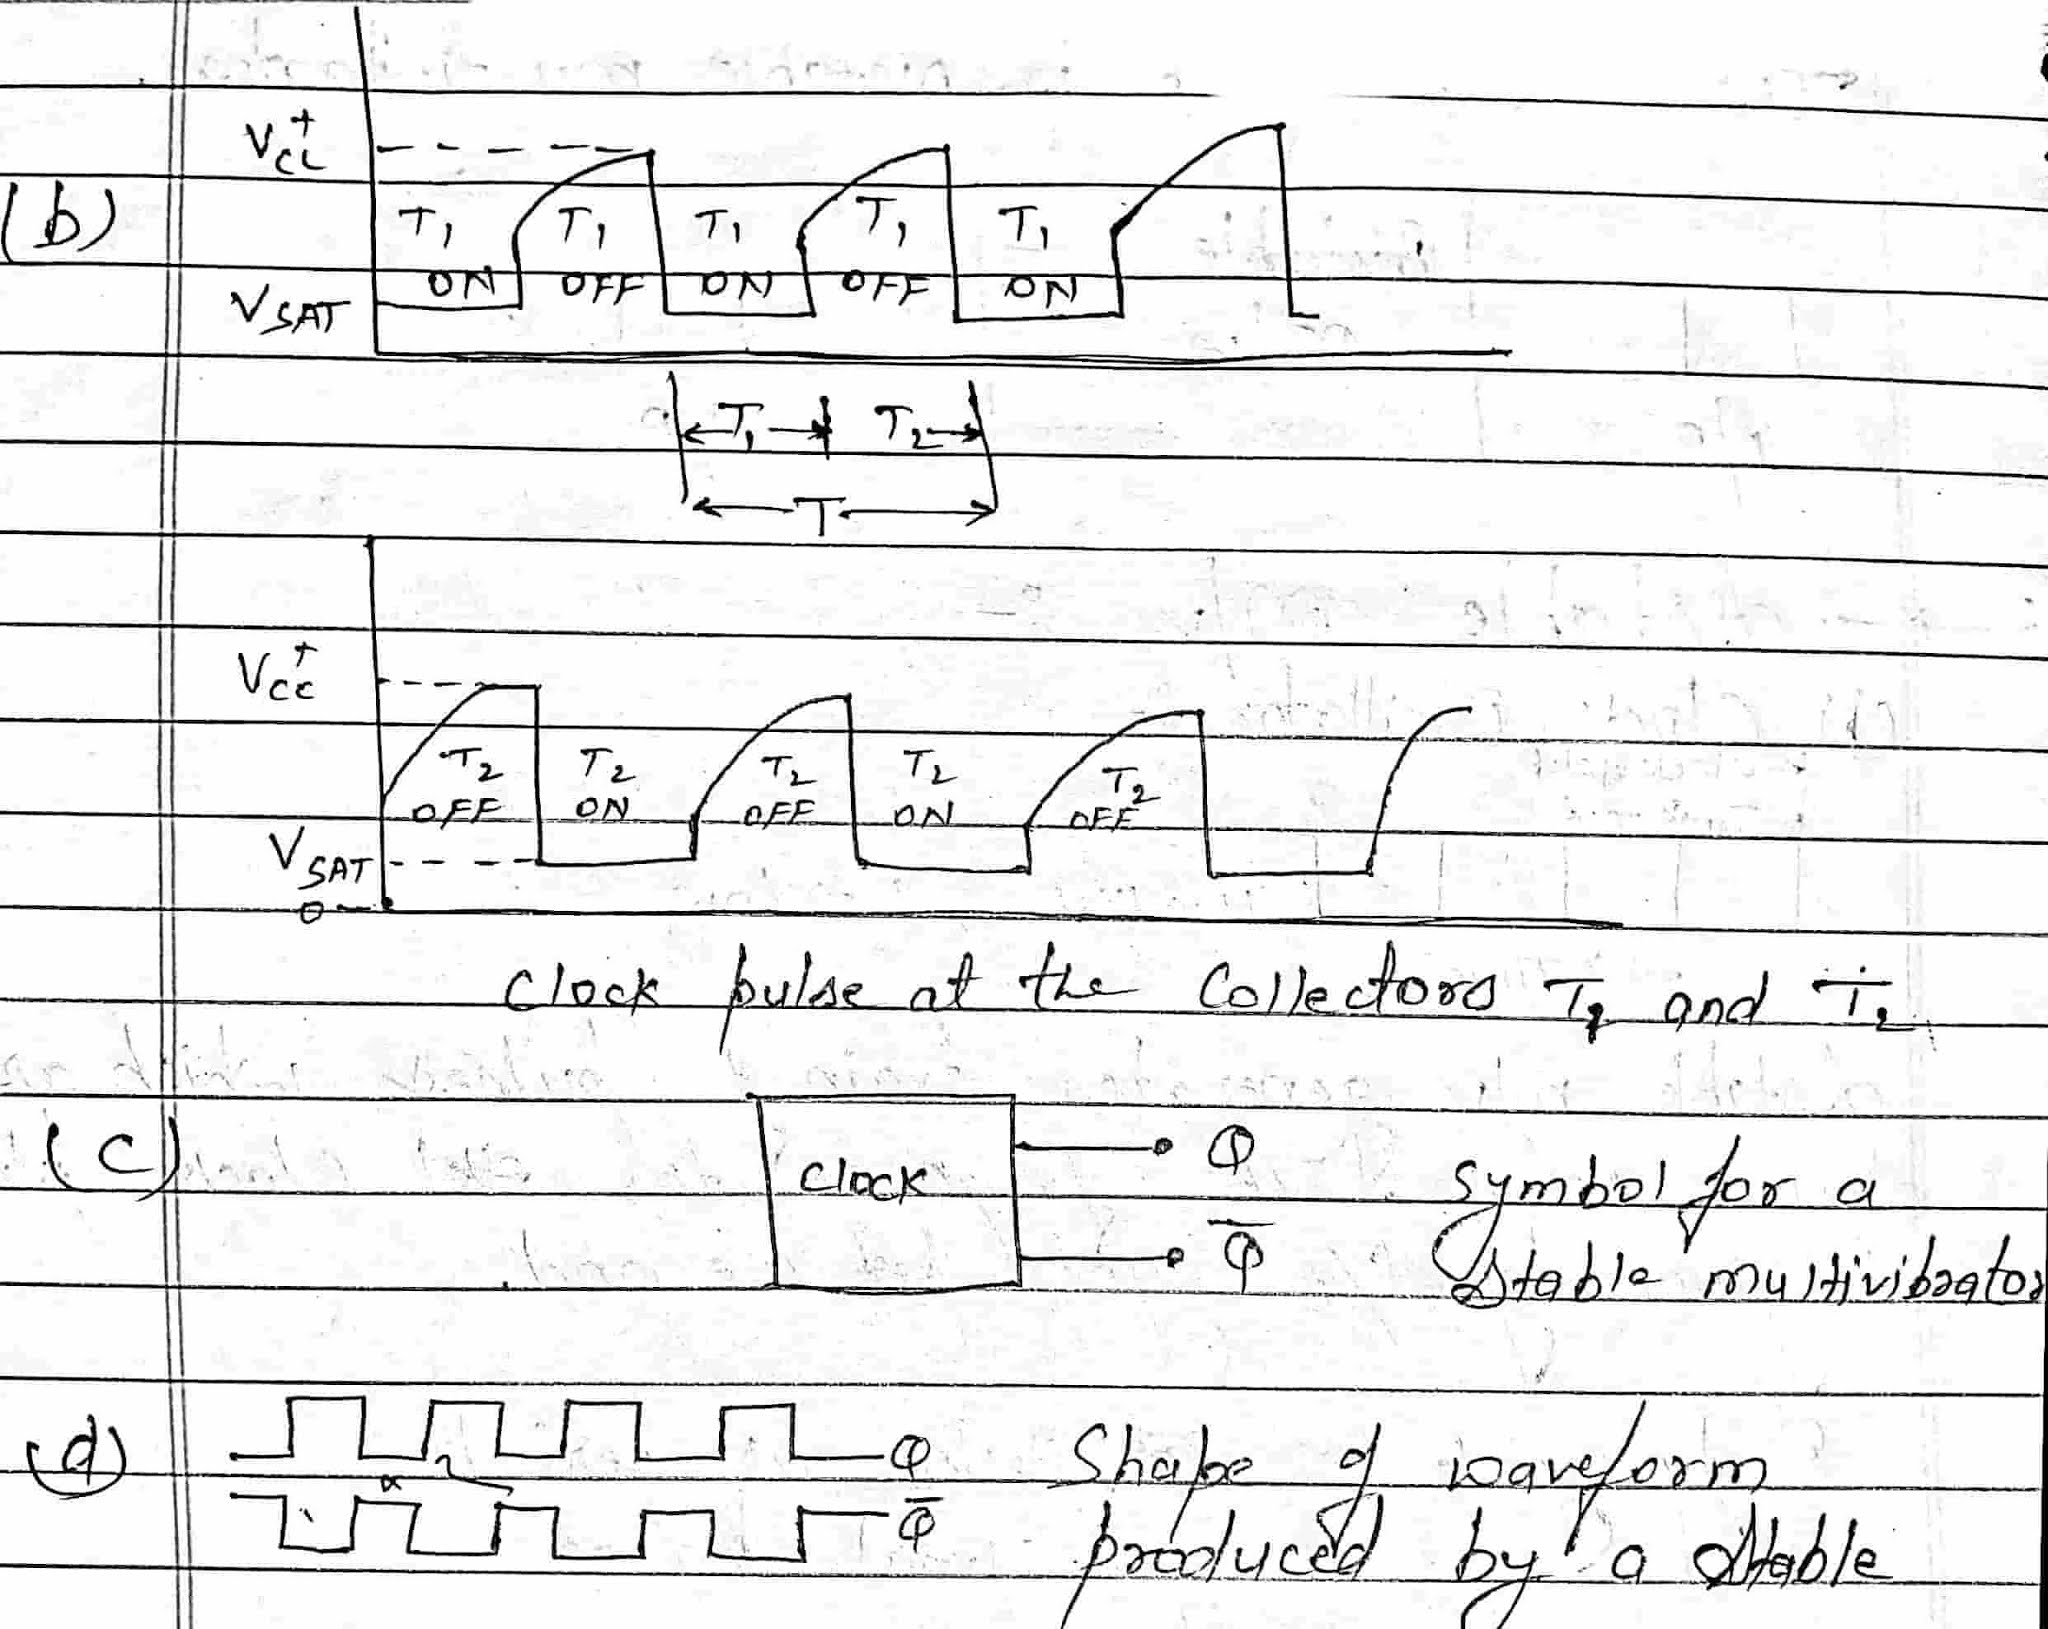 (b)
V_CC^+
T₁ T₁ T₁ T₁ T₁
ON OFF ON OFF ON
V_SAT
T₁ T₂
T
V_CC^+
T₂ T₂ T₂ T₂ T₂
OFF ON OFF ON OFF
V_SAT
0
Clock pulse at the Collectors T₁ and T₂
(c)
Clock
Q
Q̅
Symbol for a
Stable multivibrator
(d)
Q
Q̅
Shape of waveform
produced by a Stable